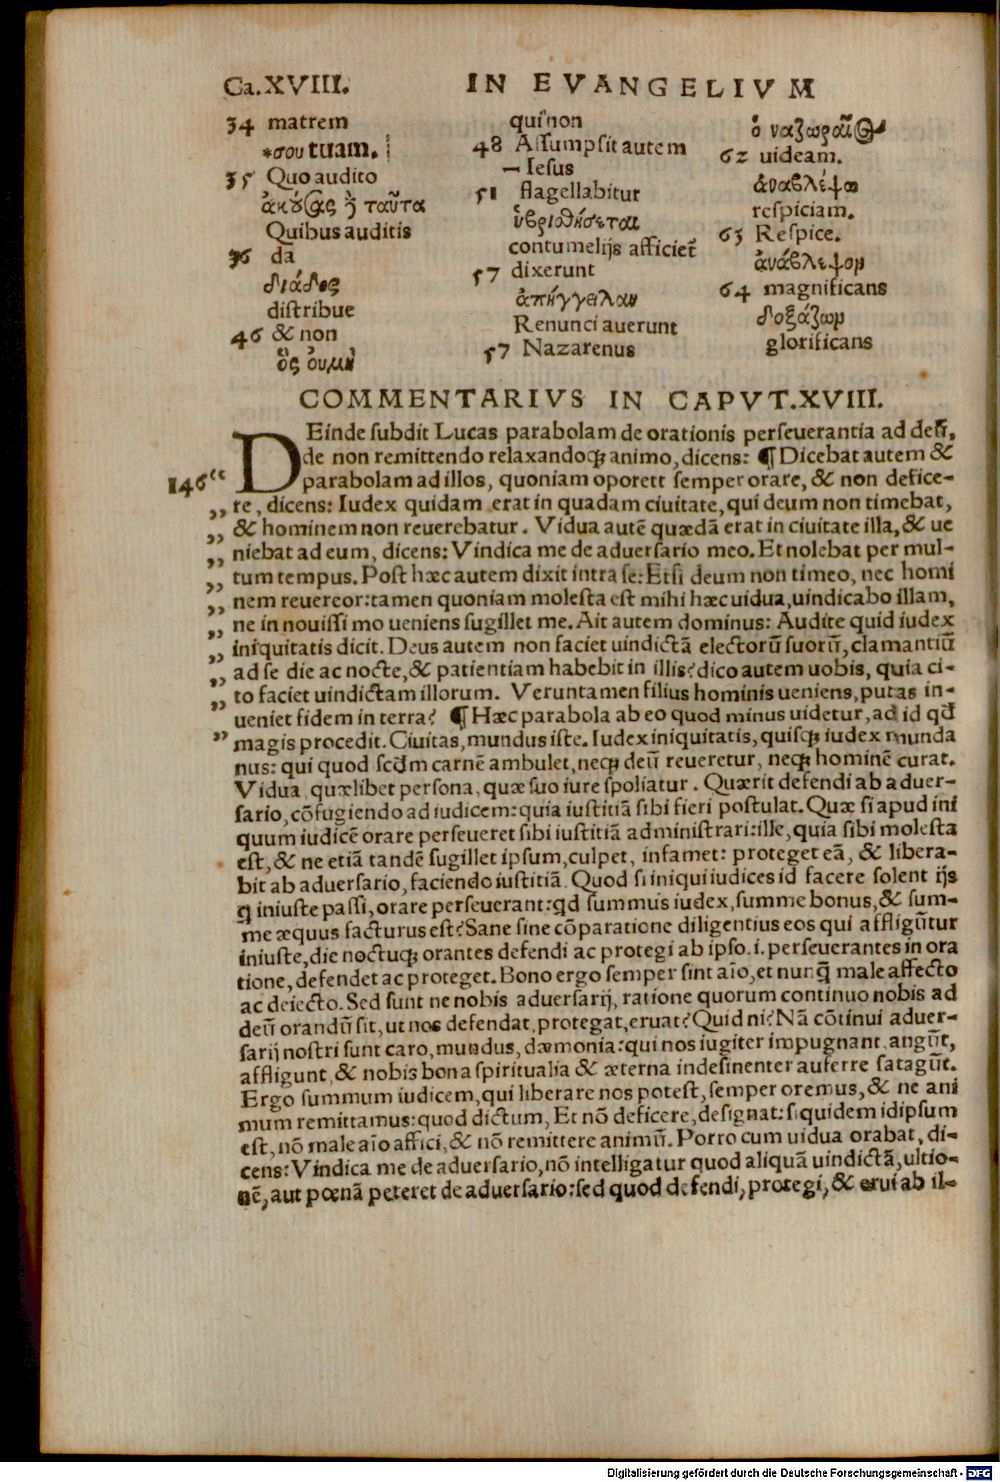 Ca.XVIII.
IN EVANGELIVM
34 matrem
*σου tuam.
35 Quo audito
ἀκούσας δὲ ταῦτα
Quibus auditis
36 da
διάδος
distribue
46 & non
ὃς οὐ μὴ
qui non
48 Assumpsit autem
— Iesus
51 flagellabitur
ὑβρισθήσεται
contumelijs afficiet̃
57 dixerunt
ἀπήγγειλαν
Renunciauerunt
57 Nazarenus
ὁ ναζωραῖος
62 uideam.
ἀναβλέψω
respiciam.
63 Respice.
ἀνάβλεψον
64 magnificans
δοξάζων
glorificans
COMMENTARIVS IN CAPVT.XVIII.
DEinde subdit Lucas parabolam de orationis perseuerantia ad deũ,
de non remittendo relaxandoq; animo, dicens: ¶ Dicebat autem &
146 parabolam ad illos, quoniam oportet semper orare, & non defice-
,, re, dicens: Iudex quidam erat in quadam ciuitate, qui deum non timebat,
,, & hominem non reuerebatur. Vidua autẽ quædã erat in ciuitate illa, & ue
,, niebat ad eum, dicens: Vindica me de aduersario meo. Et nolebat per mul-
,, tum tempus. Post hæc autem dixit intra se: Etsi deum non timeo, nec homi
,, nem reuereor: tamen quoniam molesta est mihi hæc uidua, uindicabo illam,
,, ne in nouissimo ueniens sugillet me. Ait autem dominus: Audite quid iudex
,, iniquitatis dicit. Deus autem non faciet uindictã electorũ suorũ, clamantiũ
,, ad se die ac nocte, & patientiam habebit in illis? dico autem uobis, quia ci-
,, to faciet uindictam illorum. Veruntamen filius hominis ueniens, putas in-
ueniet fidem in terra? ¶ Hæc parabola ab eo quod minus uidetur, ad id qd̃
,, magis procedit. Ciuitas, mundus iste. Iudex iniquitatis, quisq; iudex munda
nus: qui quod scd̃m carnẽ ambulet, neq; deũ reueretur, neq; hominẽ curat.
Vidua, quælibet persona, quæ suo iure spoliatur. Quærit defendi ab aduer-
sario, cõfugiendo ad iudicem: quia iustitiã sibi fieri postulat. Quæ si apud ini
quum iudicẽ orare perseueret sibi iustitiã administrari: ille, quia sibi molesta
est, & ne etiã tandẽ sugillet ipsum, culpet, infamet: proteget eã, & libera-
bit ab aduersario, faciendo iustitiã. Quod si iniqui iudices id facere solent ijs
q̃ iniuste passi, orare perseuerant: qd̃ summus iudex, summe bonus, & sum-
me æquus facturus est? Sane sine cõparatione diligentius eos qui affligũtur
iniuste, die noctuq; orantes defendi ac protegi ab ipso .i. perseuerantes in ora
tione, defendet ac proteget. Bono ergo semper sint aĩo, et nunq̃ male affecto
ac deiecto. Sed sunt ne nobis aduersarij, ratione quorum continuo nobis ad
deũ orandũ sit, ut nos defendat, protegat, eruat? Quid ni? Nã cõtinui aduer-
sarij nostri sunt caro, mundus, dæmonia: qui nos iugiter impugnant, angũt,
affligunt, & nobis bona spiritualia & æterna indesinenter auferre satagũt.
Ergo summum iudicem, qui liberare nos potest, semper oremus, & ne ani
mum remittamus: quod dictum, Et nõ deficere, designat: siquidem idipsum
est, nõ male aĩo affici, & nõ remittere animũ. Porro cum uidua orabat, di-
cens: Vindica me de aduersario, nõ intelligatur quod aliquã uindictã, ultio-
nẽ, aut pœnã peteret de aduersario: sed quod defendi, protegi, & erui ab il-
Digitalisierung gefördert durch die Deutsche Forschungsgemeinschaft - DFG